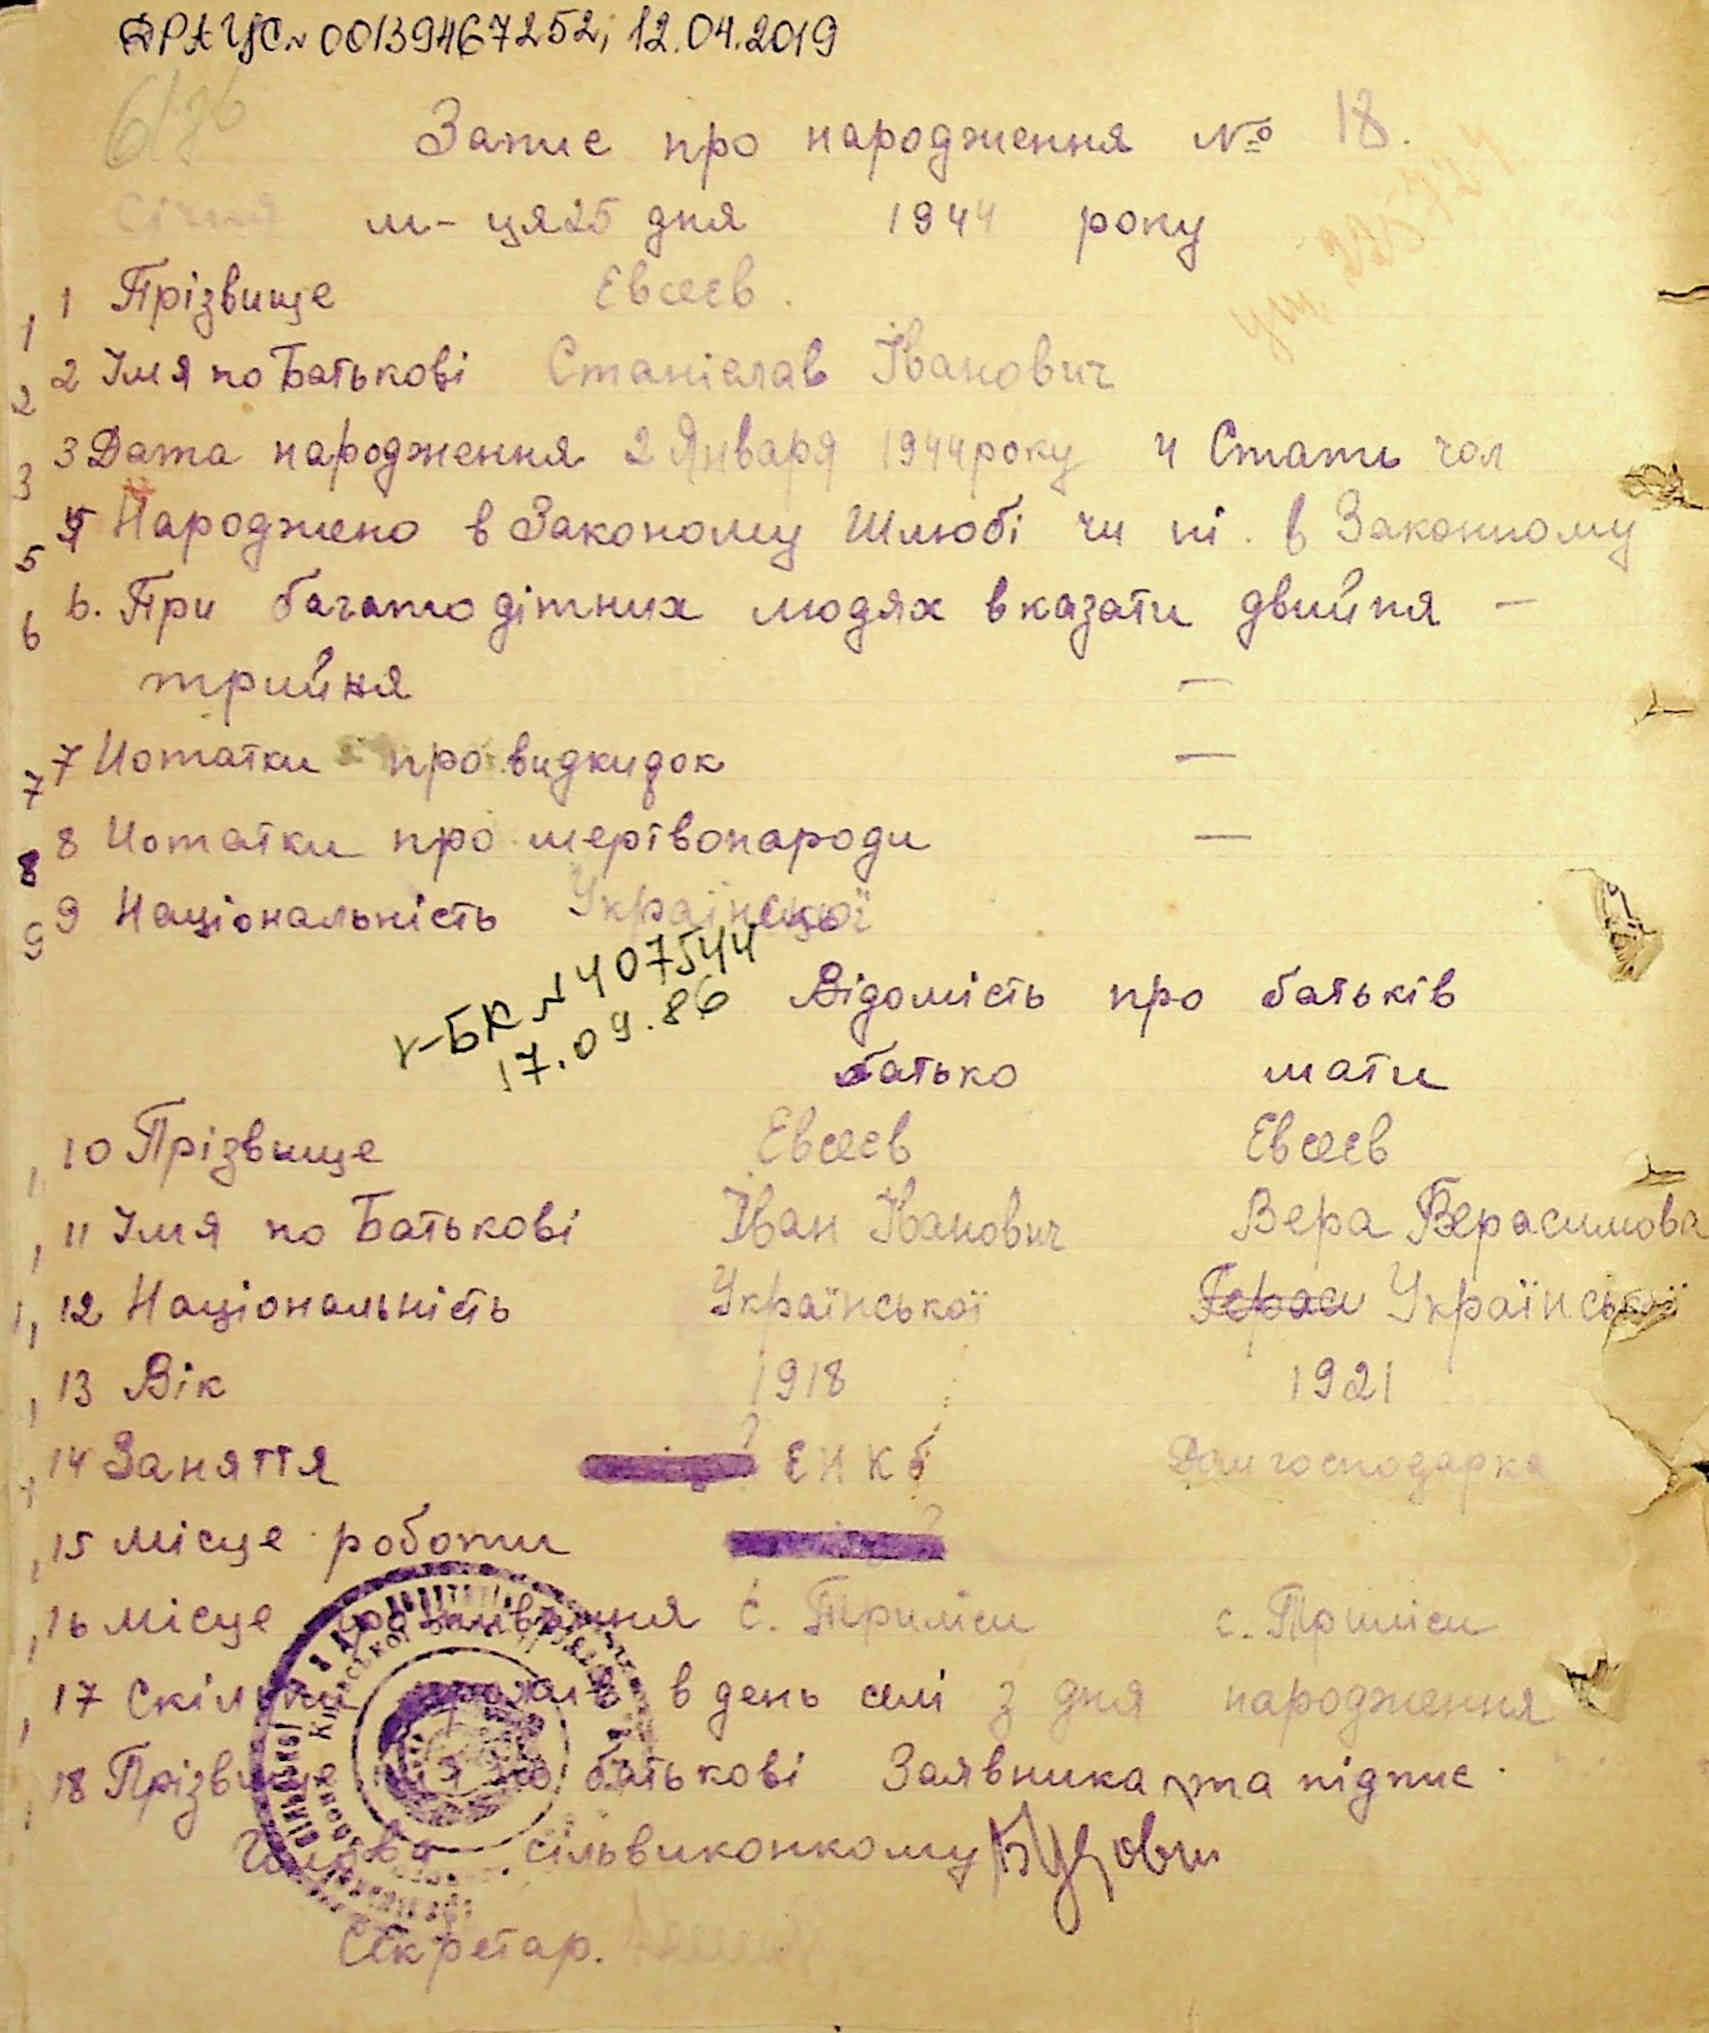 ДРАЦС № 00139467252; 12.04.2019
Запис про народження № 18.
Січня м-ця 25 дня 1944 року
1 1 Прізвище Евсеєв.
2 2 Імя по Батькові Станіслав Іванович
3 3 Дата народження 2 Января 1944 року 4 Стать чол
5 5 Народжено в Законому Шлюбі чи ні. в Законному
6 6. При багатодітних людях вказати двийня —
трийня —
7 7 Нотатки про видкидок —
8 8 Нотатки про мертвонароди —
9 9 Національність Українській
V-БК № 407544
17.09.86
Відомість про батьків
батько мати
10 Прізвище Евсеєв Евсеєв
11 Імя по Батькові Іван Іванович Вера Герасимова
12 Національність Української Гераси Української
13 Вік 1918 1921
14 Заняття Домгосподарка
15 Місце роботи
16 Місце проживання с. Триліси с. Триліси
17 Скільки прожив в день селі з дня народження
18 Прізвище імя по батькові Заявника та підпис.
Голова сільвиконкому
Секретар.